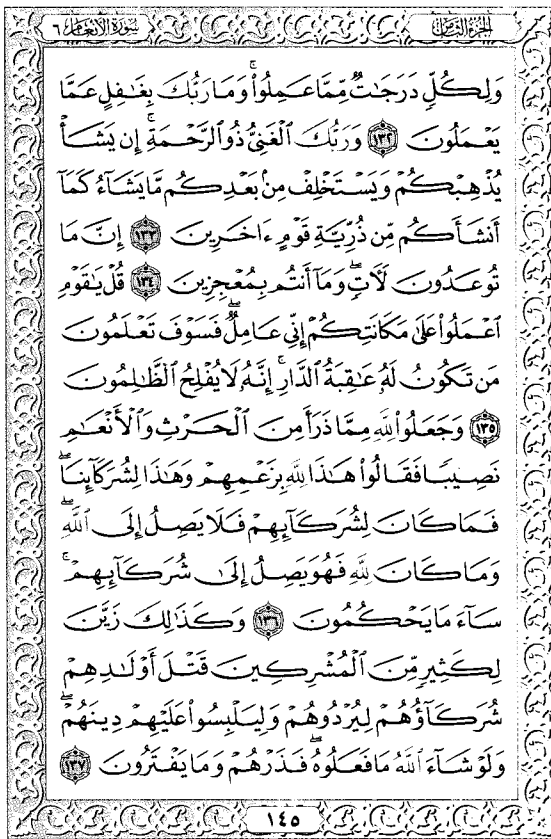 الجزء الثامن
سورة الأنعام ٦
وَلِكُلٍّ دَرَجَٰتٌ مِّمَّا عَمِلُوا۟ ۚ وَمَا رَبُّكَ بِغَٰفِلٍ عَمَّا
يَعْمَلُونَ ١٣٢ وَرَبُّكَ ٱلْغَنِىُّ ذُو ٱلرَّحْمَةِ ۚ إِن يَشَأْ
يُذْهِبْكُمْ وَيَسْتَخْلِفْ مِنۢ بَعْدِكُم مَّا يَشَآءُ كَمَآ
أَنشَأَكُم مِّن ذُرِّيَّةِ قَوْمٍ ءَاخَرِينَ ١٣٣ إِنَّ مَا
تُوعَدُونَ لَءَاتٍ ۖ وَمَآ أَنتُم بِمُعْجِزِينَ ١٣٤ قُلْ يَٰقَوْمِ
ٱعْمَلُوا۟ عَلَىٰ مَكَانَتِكُمْ إِنِّى عَامِلٌ ۖ فَسَوْفَ تَعْلَمُونَ
مَن تَكُونُ لَهُۥ عَٰقِبَةُ ٱلدَّارِ ۗ إِنَّهُۥ لَا يُفْلِحُ ٱلظَّٰلِمُونَ
١٣٥ وَجَعَلُوا۟ لِلَّهِ مِمَّا ذَرَأَ مِنَ ٱلْحَرْثِ وَٱلْأَنْعَٰمِ
نَصِيبًا فَقَالُوا۟ هَٰذَا لِلَّهِ بِزَعْمِهِمْ وَهَٰذَا لِشُرَكَآئِنَا ۖ
فَمَا كَانَ لِشُرَكَآئِهِمْ فَلَا يَصِلُ إِلَى ٱللَّهِ ۖ
وَمَا كَانَ لِلَّهِ فَهُوَ يَصِلُ إِلَىٰ شُرَكَآئِهِمْ ۗ
سَآءَ مَا يَحْكُمُونَ ١٣٦ وَكَذَٰلِكَ زَيَّنَ
لِكَثِيرٍ مِّنَ ٱلْمُشْرِكِينَ قَتْلَ أَوْلَٰدِهِمْ
شُرَكَآؤُهُمْ لِيُرْدُوهُمْ وَلِيَلْبِسُوا۟ عَلَيْهِمْ دِينَهُمْ ۖ
وَلَوْ شَآءَ ٱللَّهُ مَا فَعَلُوهُ ۖ فَذَرْهُمْ وَمَا يَفْتَرُونَ ١٣٧
١٤٥